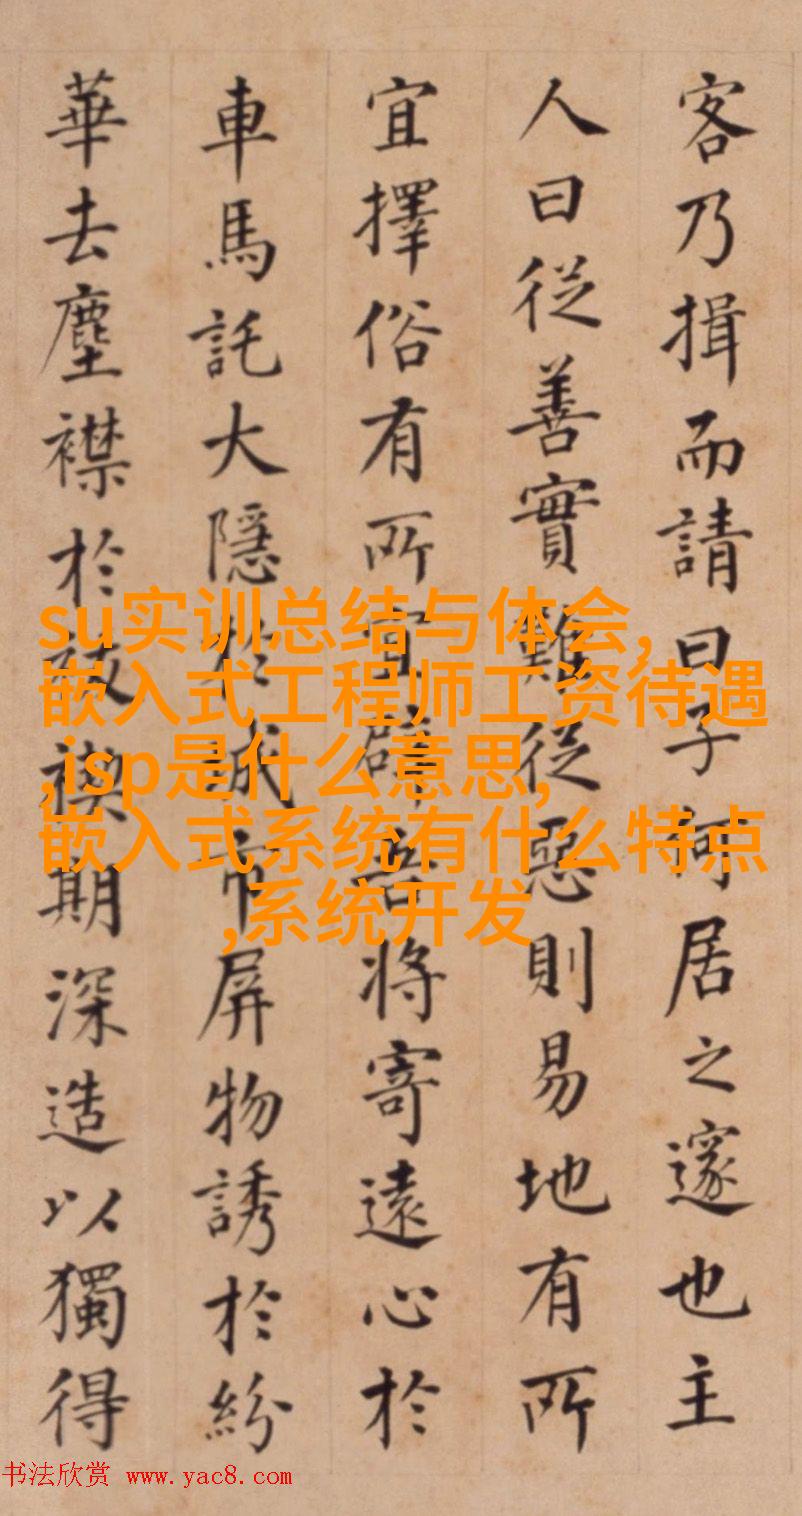 客乃揖而請曰子何居之邃也主
人曰從善實難從惡則易地有所
宜擇俗有所宜辟吾將寄遠心於
車馬託大隱於城市屏物誘於紛
華去塵襟於祓禊期深造以獨得
su实训总结与体会,
嵌入式工程师工资待遇
,isp是什么意思,
嵌入式系统有什么特点
,系统开发
书法欣赏 www.yac8.com